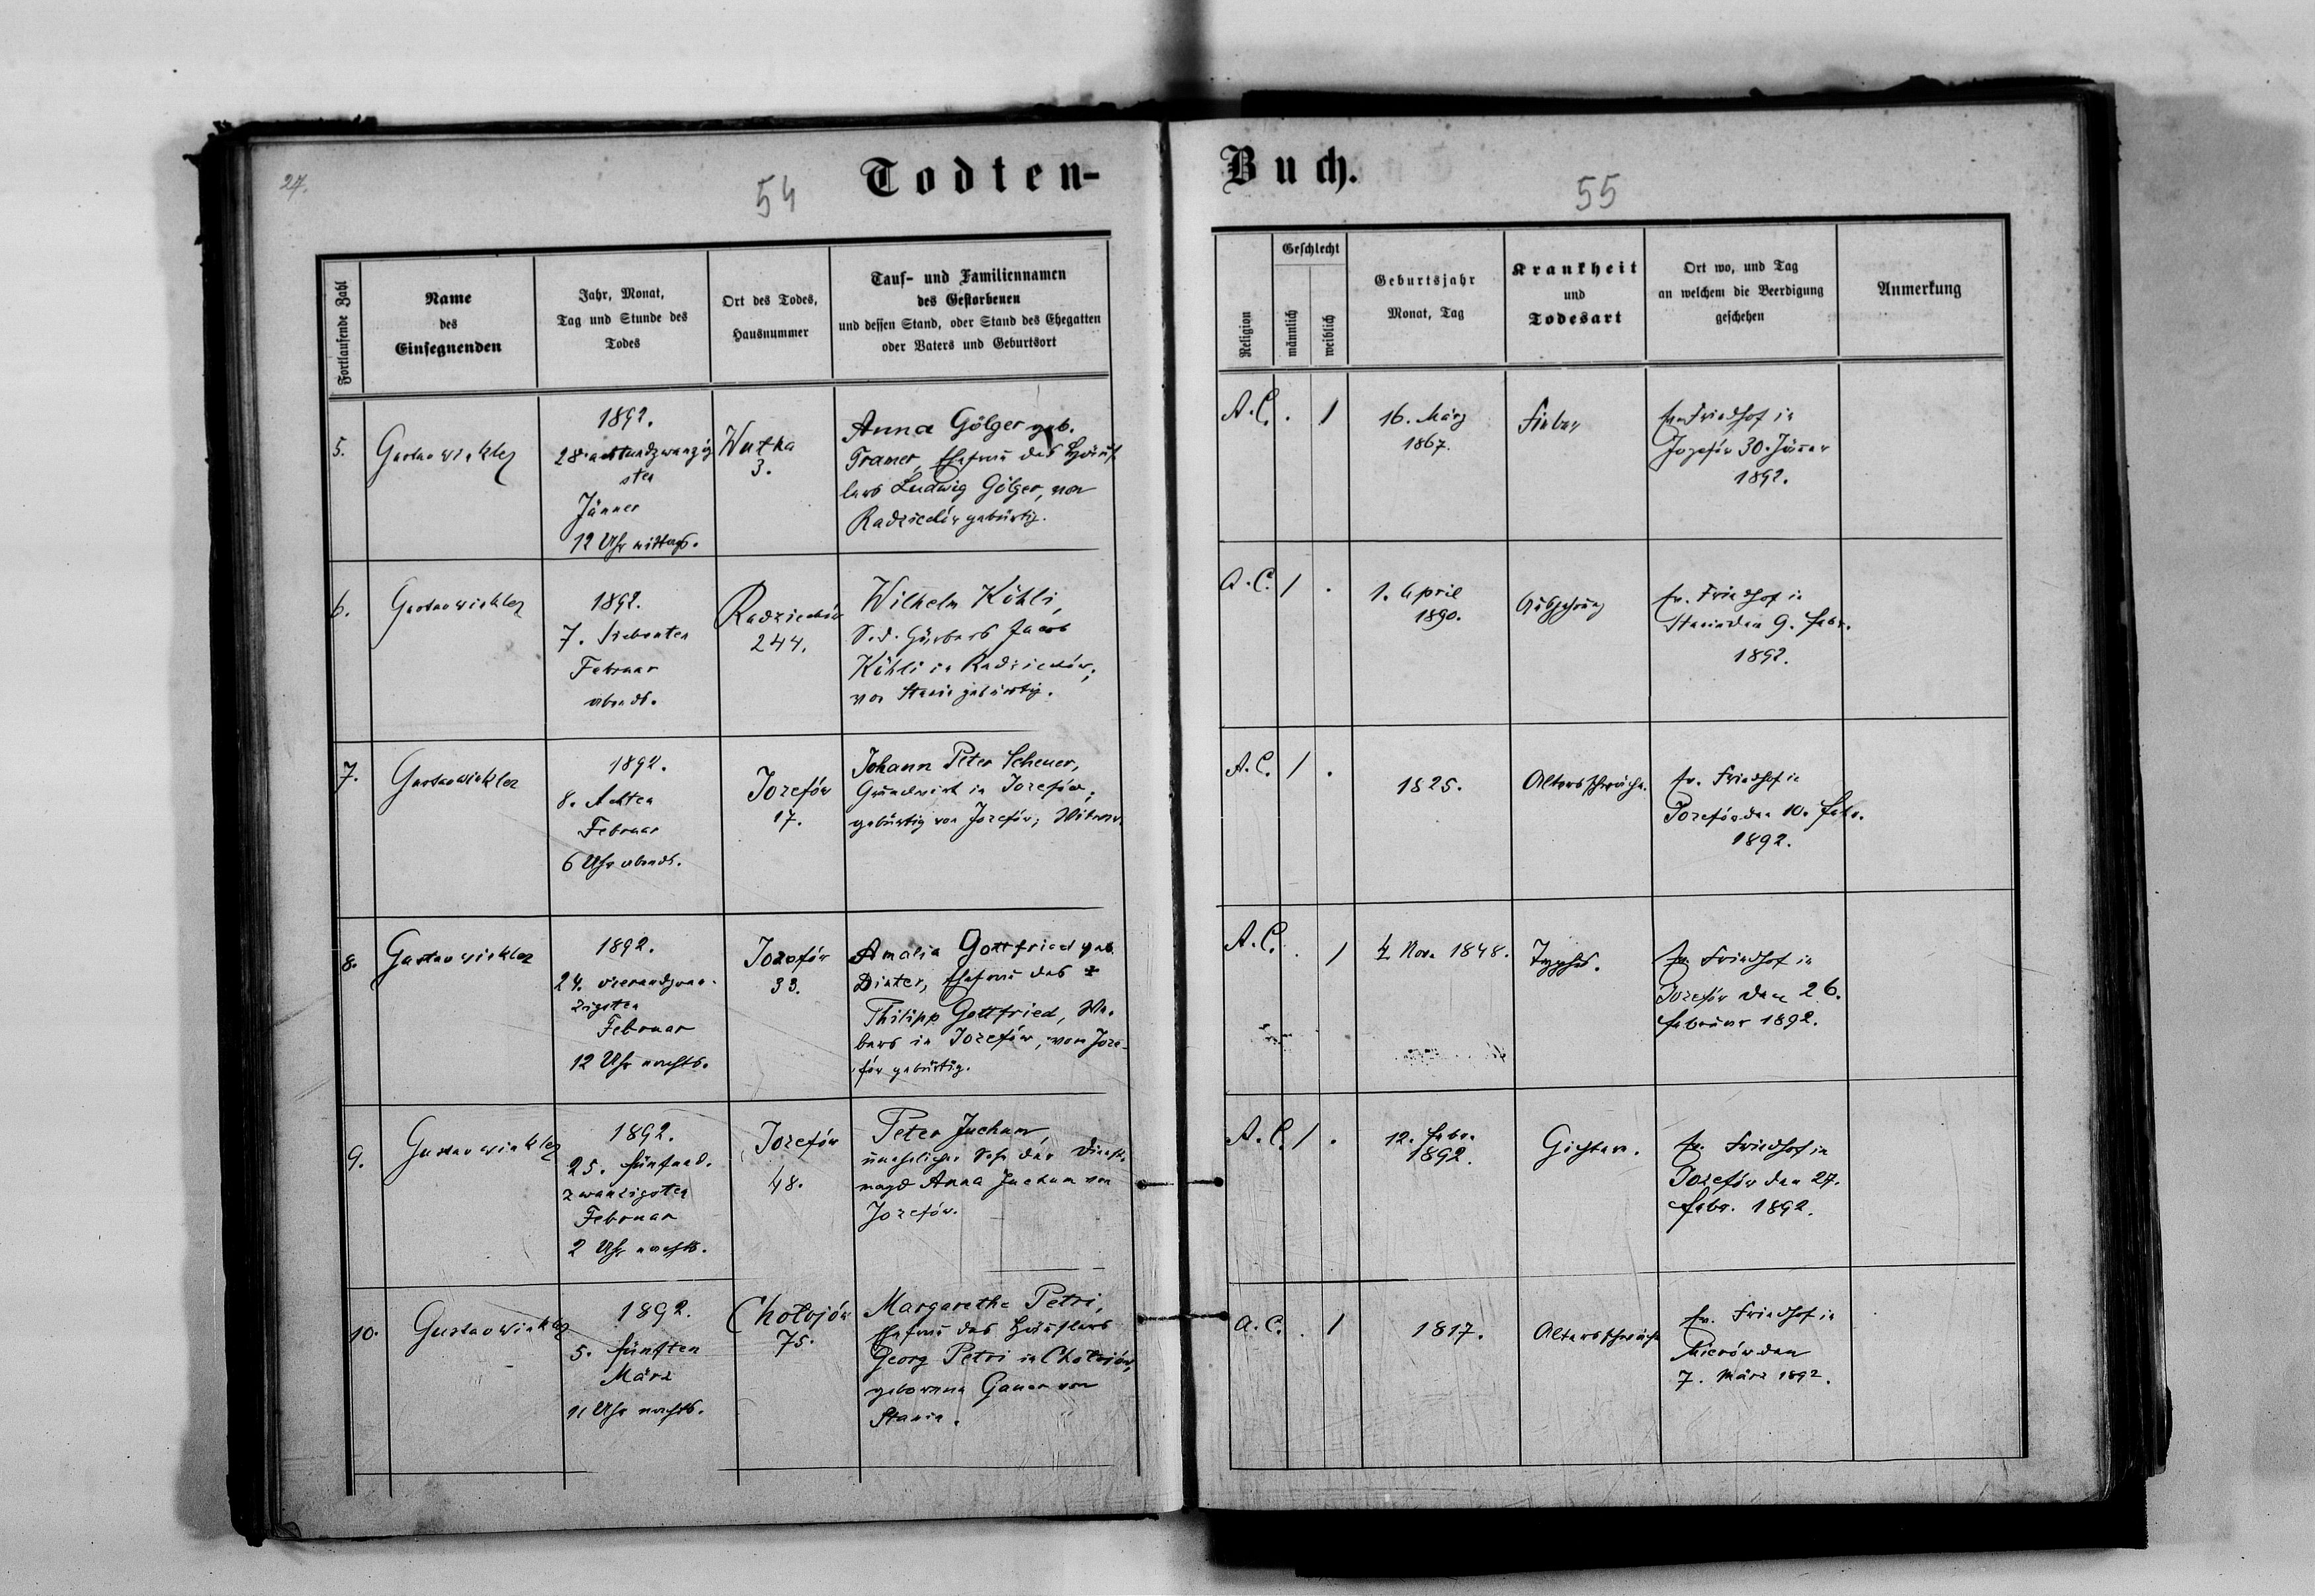 27.
54
Todten-
Fortlaufende Zahl
Name
des
Einsegnenden
Jahr, Monat,
Tag und Stunde des
Todes
Ort des Todes,
Hausnummer
Tauf- und Familiennamen
des Gestorbenen
und dessen Stand, oder Stand des Ehegatten
oder Vaters und Geburtsort
5.
Gustav Winkler
1892.
28. achtundzwanzig
sten
Jänner
12 Uhr mittags.
Wutka
3.
Anna Gölger geb.
Tramer, Ehefrau des Häus
lers Ludwig Gölger, von
Radziechów gebürtig.
6.
Gustav Winkler
1892.
7. Siebenten
Februar
abends.
Radziechów
244.
Wilhelm Köhli,
S. d. Gärbers Jacob
Köhli in Radziechów,
von Stanin gebürtig.
7.
Gustav Winkler
1892.
8. Achten
Februar
6 Uhr abends.
Jozefów
17.
Johann Peter Scheuer,
Grundwirt in Jozefów,
gebürtig von Jozefów, Witwer.
8.
Gustav Winkler
1892.
24. vierundzwan-
zigsten
Februar
12 Uhr nachts.
Jozefów
33.
Amalia Gottfried geb.
Dinter, Ehefrau des
Philipp Gottfried, We-
bers in Jozefów, von Joze-
fów gebürtig.
9.
Gustav Winkler
1892.
25. fünfund.
zwanzigsten
Februar
2 Uhr nachts.
Jozefów
48.
Peter Juchum
unehelicher Sohn der Dienst-
magd Anna Juchum von
Jozefów.
10.
Gustav Winkler
1892.
5. fünften
März
11 Uhr nachts.
Chołojów
75.
Margarethe Petri,
Ehefrau des Häuslers
Georg Petri in Chołojów,
geborene Ganer von
Stanin.
Buch.
55
Religion
Geschlecht
männlich
weiblich
Geburtsjahr
Monat, Tag
Krankheit
und
Todesart
Ort wo, und Tag
an welchem die Beerdigung
geschehen
Anmerkung
A. C. . 1
16. März
1867.
Fieber
Ev. Friedhof in
Jozefów 30. Jänner
1892.
A. C. 1 .
1. April
1890.
Auszehrung
Ev. Friedhof in
Stanin den 9. Febr.
1892.
A. C. 1 .
1825.
Altersschwäche.
Ev. Friedhof in
Jozefów den 10. Febr.
1892.
A. C. . 1
4 Nov. 1848.
Typhus.
Ev. Friedhof in
Jozefów den 26.
Februar 1892.
A. C. 1 .
12. Febr.
1892.
Gichter.
Ev. Friedhof in
Jozefów den 27.
Febr. 1892.
A. C. . 1
1817.
Altersschwäche
Ev. Friedhof in
Mierów den
7. März 1892.